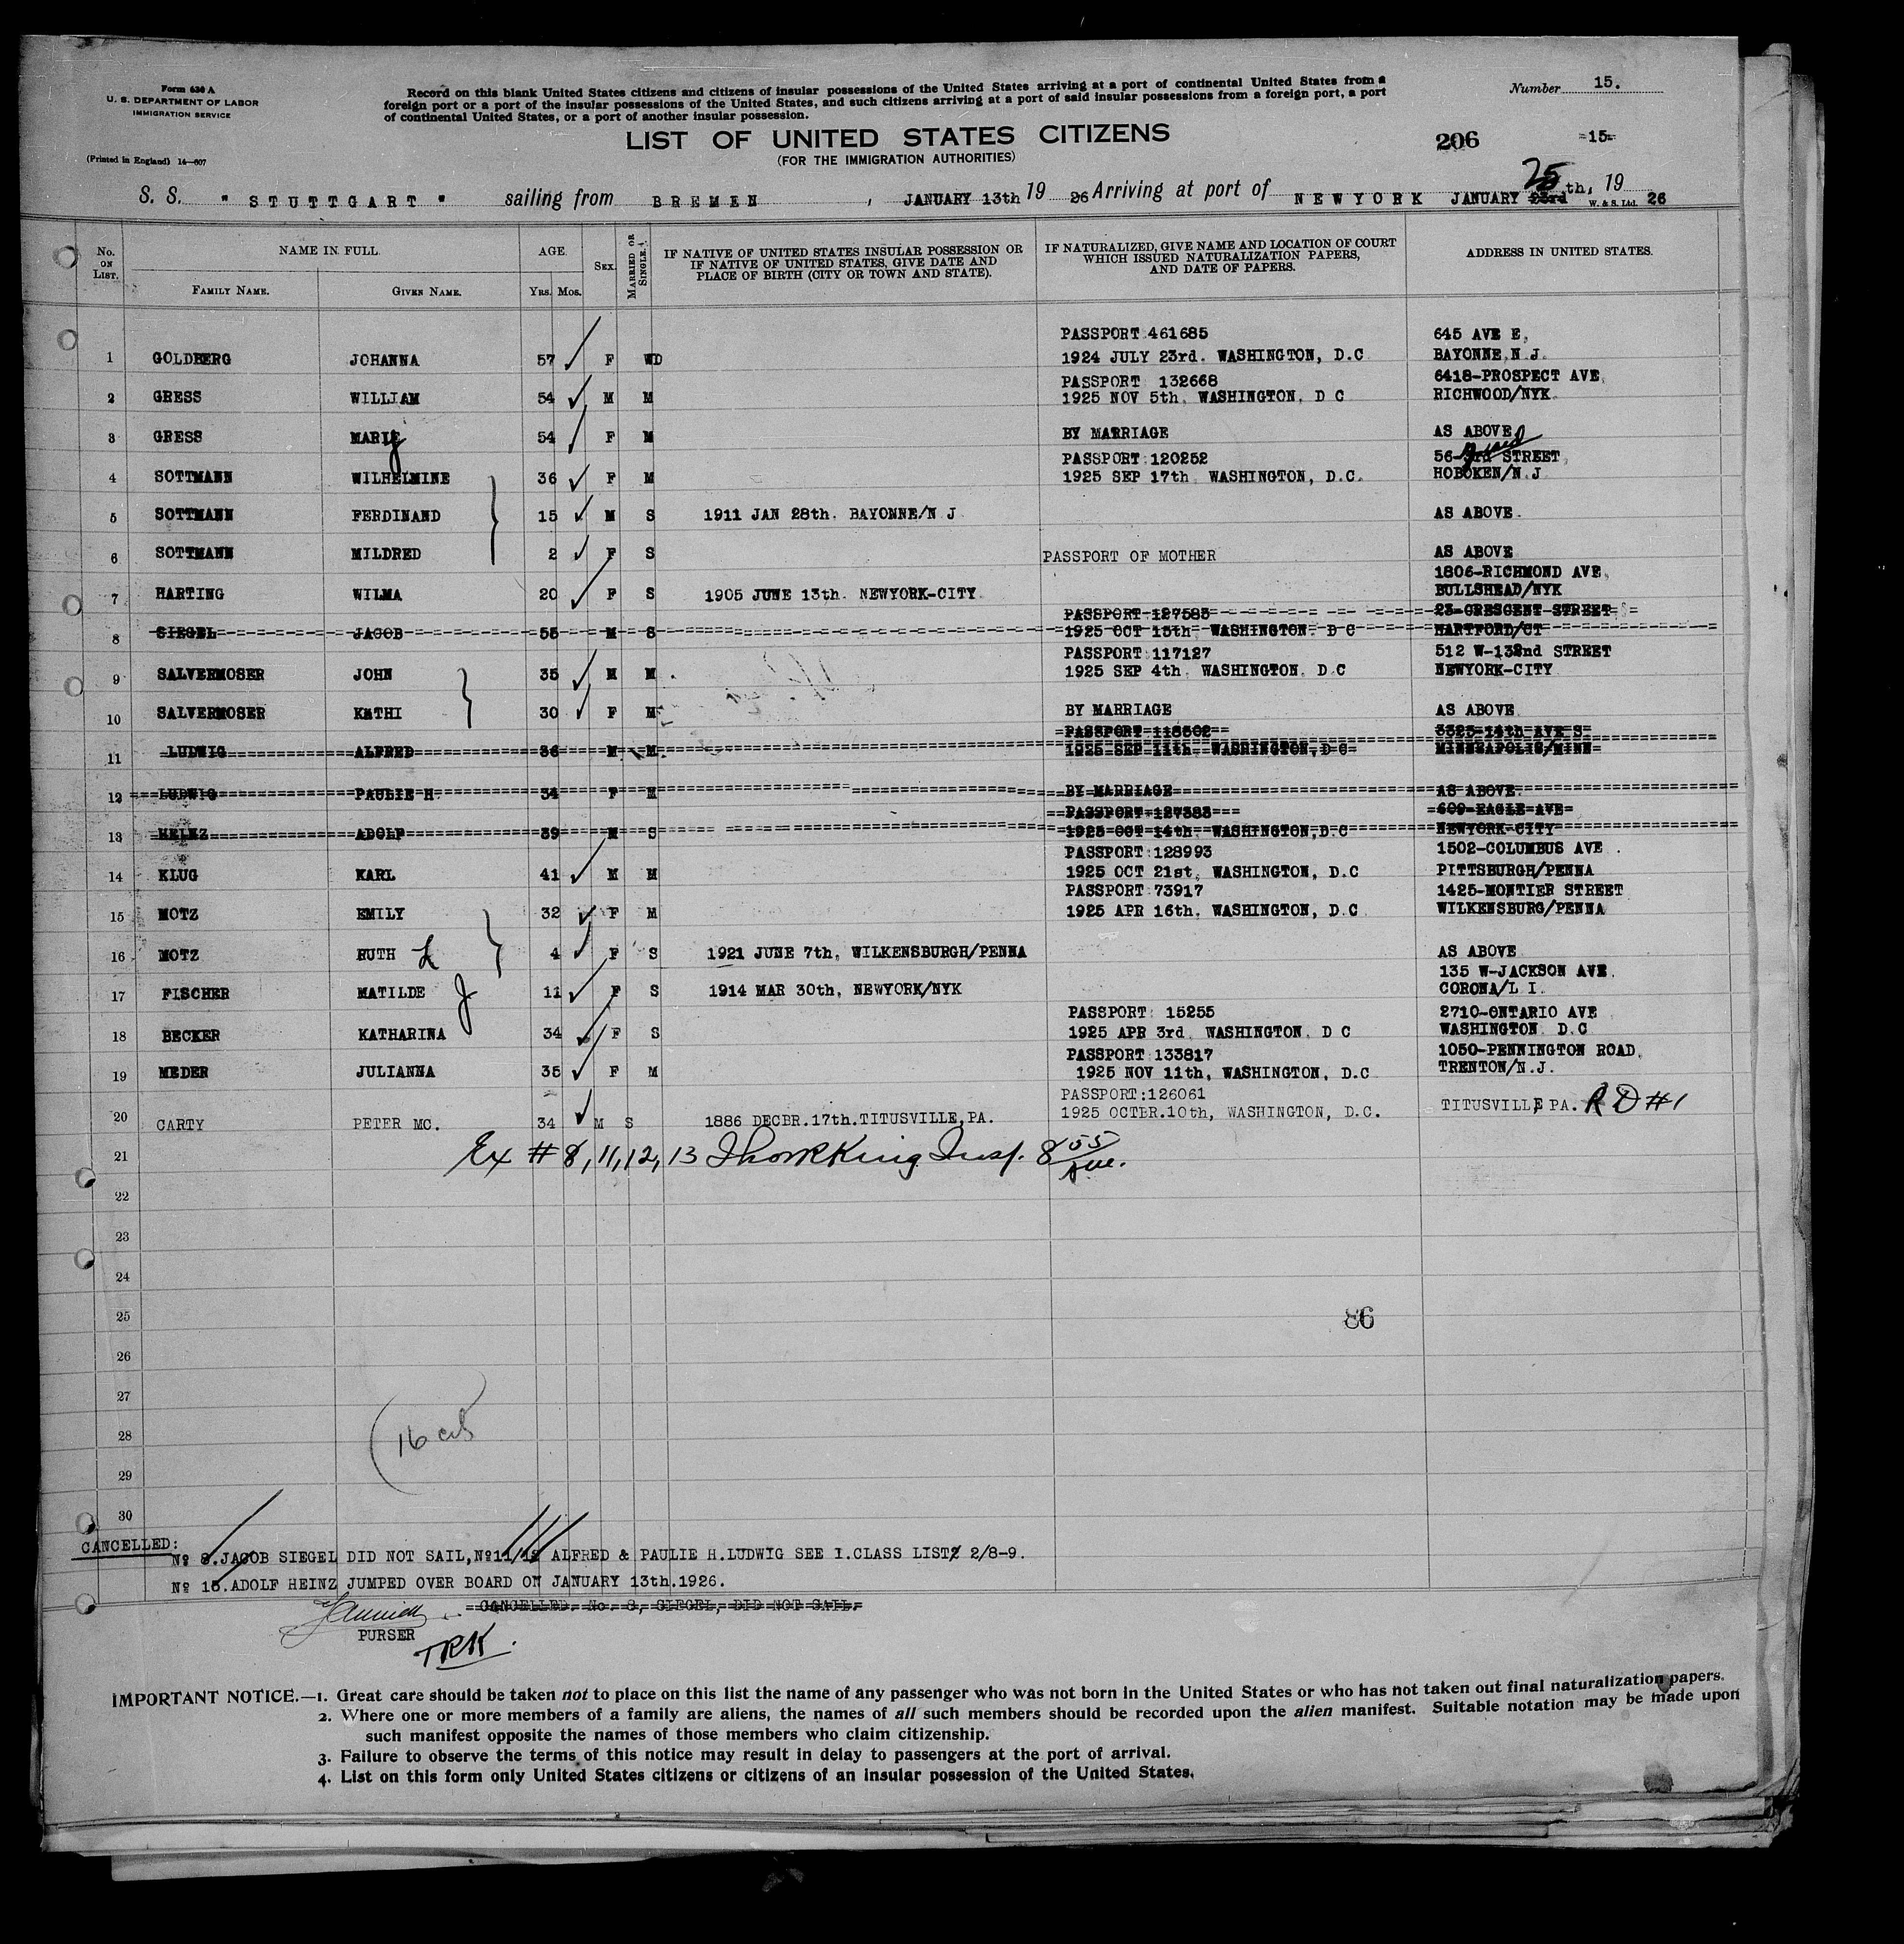 Form 630 A
U. S. DEPARTMENT OF LABOR
IMMIGRATION SERVICE
(Printed in England) 14—607
Record on this blank United States citizens and citizens of insular possessions of the United States arriving at a port of continental United States from a
foreign port or a port of the insular possessions of the United States, and such citizens arriving at a port of said insular possessions from a foreign port, a port
of continental United States, or a port of another insular possession.
Number 15.
LIST OF UNITED STATES CITIZENS
(FOR THE IMMIGRATION AUTHORITIES)
206
-15-
S. S. "STUTTGART" sailing from BREMEN, JANUARY 13th 1926 Arriving at port of NEWYORK JANUARY 23rd 25 th, 1926
W. & S. Ltd.
No. ON LIST.
NAME IN FULL.
FAMILY NAME.
GIVEN NAME.
AGE
YRS. MOS.
SEX.
MARRIED OR SINGLE.
IF NATIVE OF UNITED STATES INSULAR POSSESSION OR
IF NATIVE OF UNITED STATES, GIVE DATE AND
PLACE OF BIRTH (CITY OR TOWN AND STATE).
IF NATURALIZED, GIVE NAME AND LOCATION OF COURT
WHICH ISSUED NATURALIZATION PAPERS,
AND DATE OF PAPERS.
ADDRESS IN UNITED STATES.
PASSPORT:461685 645 AVE E,
1 GOLDBERG JOHANNA 57 F WD 1924 JULY 23rd. WASHINGTON, D.C BAYONNE.N.J.
PASSPORT: 132668 6418-PROSPECT AVE,
2 GRESS WILLIAM 54 M M 1925 NOV 5th. WASHINGTON, D C RICHWOOD/NYK.
3 GRESS MARIE 54 F M BY MARRIAGE AS ABOVE
PASSPORT:120252 56-3rd STREET,
4 SOTTMANN WILHELMINE 36 F M 1925 SEP 17th. WASHINGTON, D.C. HOBOKEN/N.J
5 SOTTMANN FERDINAND 15 M S 1911 JAN 28th. BAYONNE/N J AS ABOVE.
6 SOTTMANN MILDRED 2 F S PASSPORT OF MOTHER AS ABOVE
1806-RICHMOND AVE,
7 HARTING WILMA 20 F S 1905 JUNE 13th. NEWYORK-CITY. BULLSHEAD/NYK
PASSPORT 127583 23-CRESCENT STREET
8 SIEGEL JACOB 55 M S 1925 OCT 15th. WASHINGTON. D C HARTFORD/CT
PASSPORT:117127 512 W-132nd STREET
9 SALVERMOSER JOHN 35 M M 1925 SEP 4th. WASHINGTON. D.C NEWYORK-CITY
10 SALVERMOSER KATHI 30 F M BY MARRIAGE AS ABOVE
PASSPORT 118502 3323-14th AVE S
11 LUDWIG ALFRED 36 M M 1925 SEP 11th. WASHINGTON, D C MINNEAPOLIS/MINN
12 LUDWIG PAULIE H. 34 F M BY MARRIAGE AS ABOVE.
PASSPORT 127383 609-EAGLE AVE
13 HEINZ ADOLF 39 M S 1925 OCT 14th. WASHINGTON, D.C NEWYORK-CITY
PASSPORT:128993 1502-COLUMBUS AVE.
14 KLUG KARL 41 M M 1925 OCT 21st, WASHINGTON, D.C PITTSBURGH/PENNA
PASSPORT:73917 1425-MONTIER STREET
15 MOTZ EMILY 32 F M 1925 APR 16th, WASHINGTON, D.C WILKENSBURG/PENNA
16 MOTZ RUTH L 4 F S 1921 JUNE 7th, WILKENSBURGH/PENNA AS ABOVE
135 W-JACKSON AVE.
17 FISCHER MATILDE J 11 F S 1914 MAR 30th, NEWYORK/NYK CORONA/L I.
PASSPORT: 15255 2710-ONTARIO AVE
18 BECKER KATHARINA 34 F S 1925 APR 3rd. WASHINGTON. D C WASHINGTON. D.C
PASSPORT:133817 1050-PENNINGTON ROAD,
19 MEDER JULIANNA 35 F M 1925 NOV 11th, WASHINGTON, D.C TRENTON/N.J.
PASSPORT:126061
20 CARTY PETER MC. 34 M S 1886 DECBR.17th.TITUSVILLE,PA. 1925 OCTBR.10th, WASHINGTON, D.C. TITUSVILLE, PA. R D #1
21 Ex # 8, 11, 12, 13 Thos R King Insp. 8 55
22
23
24
25
86
26
27
28
16 cit
29
30
CANCELLED:
No 8.JACOB SIEGEL DID NOT SAIL, No 11/12 ALFRED & PAULIE H.LUDWIG SEE I.CLASS LIST 2/8-9.
No 13.ADOLF HEINZ JUMPED OVER BOARD ON JANUARY 13th.1926.
CANCELLED. No. 8, SIEGEL, DID NOT SAIL.
PURSER
TRK.
IMPORTANT NOTICE.—1. Great care should be taken not to place on this list the name of any passenger who was not born in the United States or who has not taken out final naturalization papers.
2. Where one or more members of a family are aliens, the names of all such members should be recorded upon the alien manifest. Suitable notation may be made upon
such manifest opposite the names of those members who claim citizenship.
3. Failure to observe the terms of this notice may result in delay to passengers at the port of arrival.
4. List on this form only United States citizens or citizens of an insular possession of the United States.